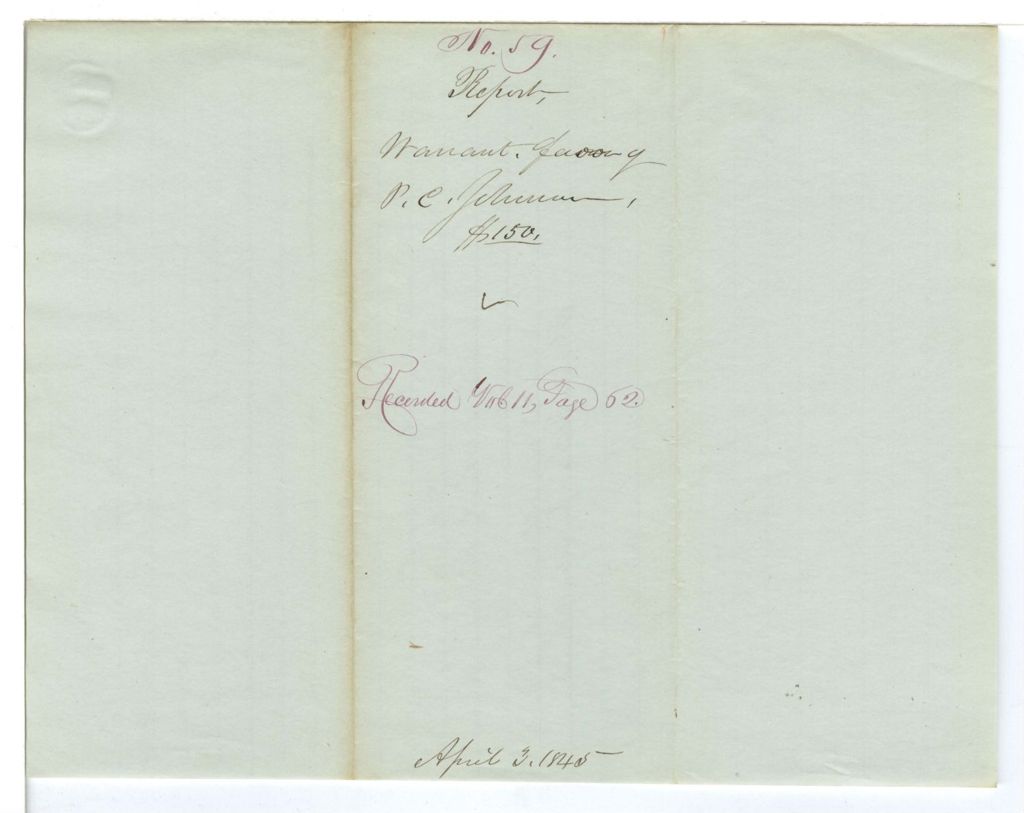 No. 59.
Report,
Warrant. favor of
P. C. Johnson,
$150.
Recorded Vol 11, Page 62.
April 3. 1845